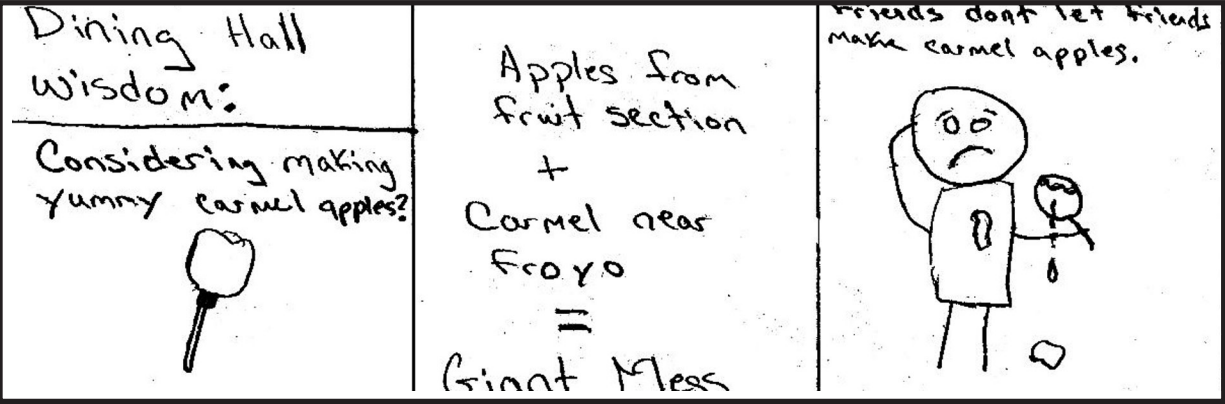 Dining Hall
Wisdom:
Considering making
yummy carmel apples?
Apples from
fruit section
+
Carmel near
Froyo
=
Giant Mess
Friends dont let Friends
make carmel apples.